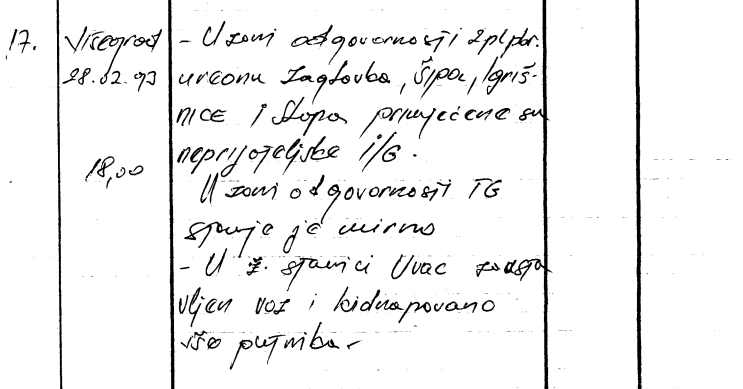 17. Višegrad - U zoni odgovornosti 2plpbr.
28.02.93 u reonu Zaglavka, Šipa, Igriš-
NICE i Stopa primjećene su
18,00 neprijateljske i/G.
U zoni odgovornosti TG
stanje je mirno
- U ž. stanici Uvac zausta
vljen voz i kidnapovano
više putnika.